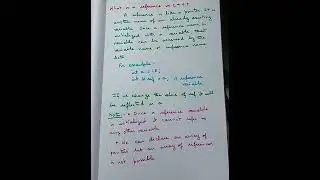 What is a reference in C++?
A reference is like a pointer. It is
another name of an already existing
variable. Once a reference name is
initialized with a variable, that
variable can be accessed by the
variable name or reference name
both.
For example -
int a = 10;
int & ref = a; // reference
variable
If we change the value of ref it will
be reflected in a.
Note: - • Once a reference variable
is initialized it cannot refer to
any other variable
• We can declare an array of
pointer but an array of references
is not possible